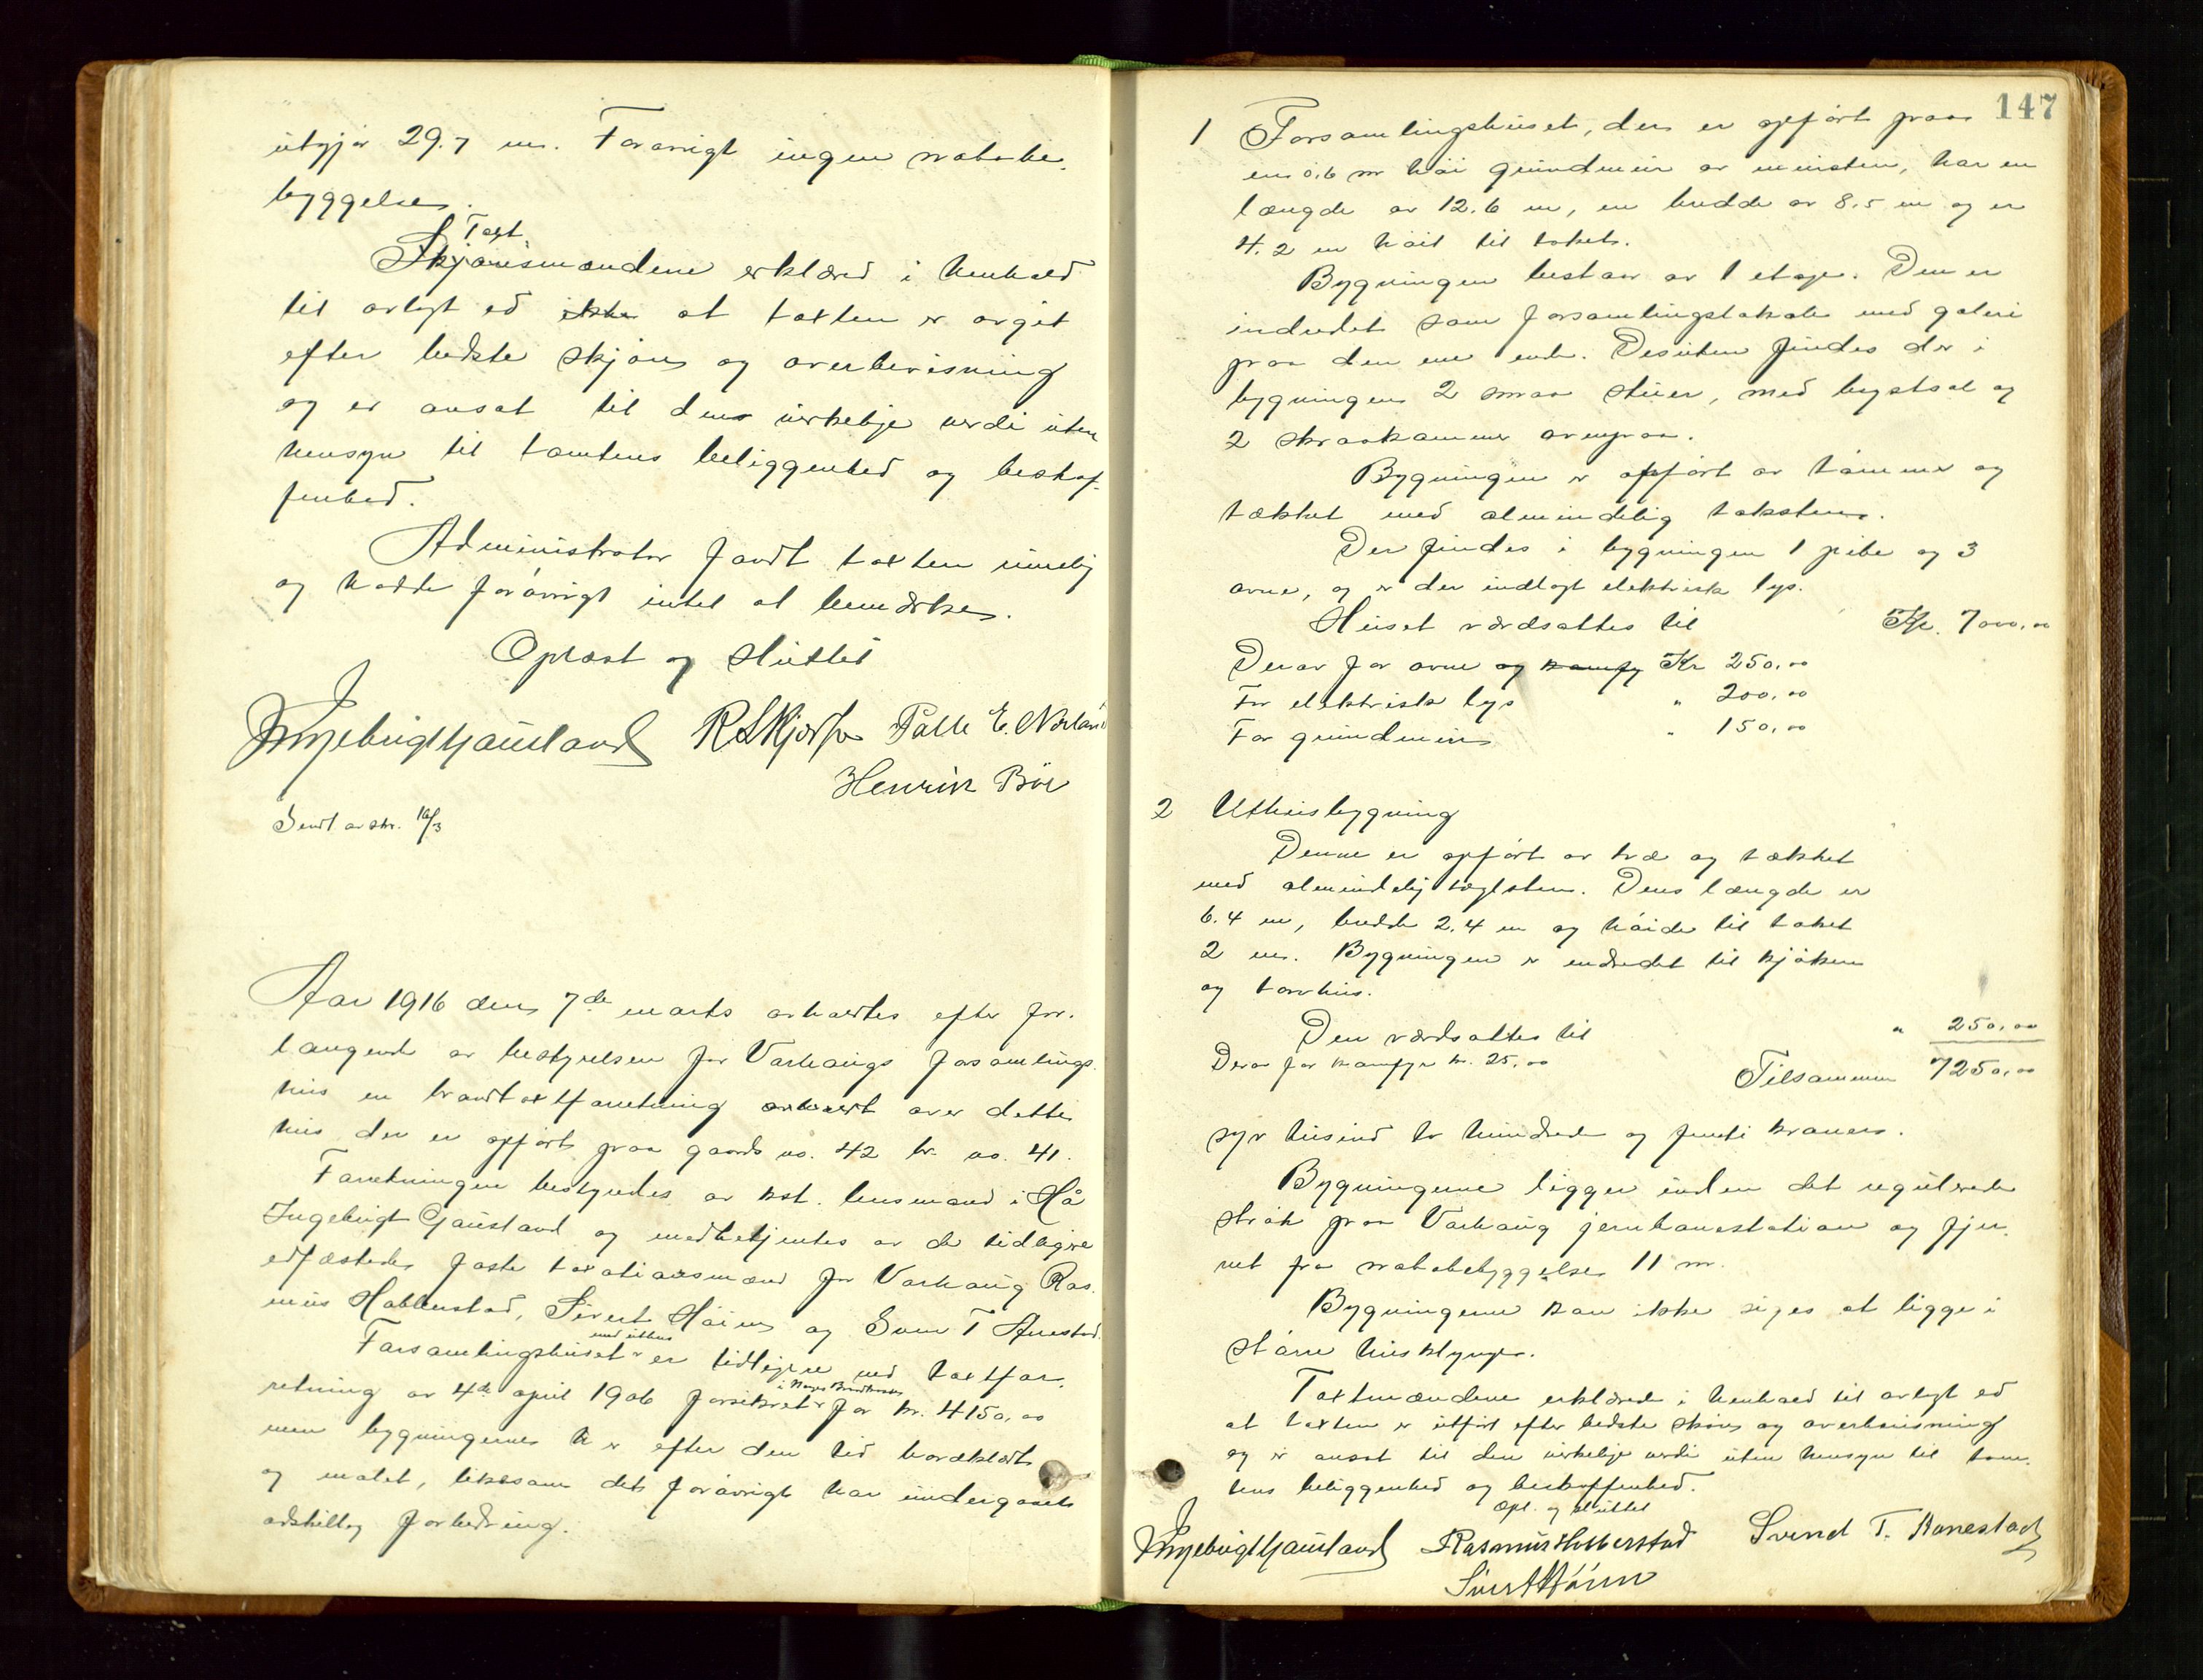 utgjør 29.7 m. Forøvrigt ingen nabobe-
byggelse.
Taxt
Skjønsmændene erklæred i henhold
til avlagt ed ikke at taxten er avgit
efter bedste skjøn og overbevisning
og er ansat til dens virkelige verdi uten
hensyn til tomtens beliggenhed og beskaf-
fenhed.
Administrator fandt taxten rimelig
og hadde forøvrigt intet at bemerke.
Oplæst og sluttet
Ingebrigt Gausland R Skjørestad Palle E. Norland
Henrik Bøe
Sendt avskr. 16/3
Aar 1916 den 7de marts avholdtes efter for-
langende av bestyrelsen for Varhaugs forsamlings-
hus en brandtaxtforretning avholdt over dette
hus der er opført paa gaards no. 42 br. no. 41.
Forretningen bestyredes av kst. lensmand i Hå
Ingebrigt Gausland og medbetjentes av de tidligere
edfæstede faste taxationsmænd for Varhaug Ras-
mus Hobberstad, Sivert Høien og Sven T Anestad.
med uthus
Forsamlingshuset er tidligere ved taxtfor-
i Norges Brandkasse
retning av 4de april 1906 forsikret for kr. 4150,00
men bygningerne er efter den tid bordklædt
og malet, likesom det forøvrigt har undergaaet
adskillig forbedring.
147
1 Forsamlingshuset, der er opført paa
en 0.6 m høi grundmur av mursten, har en
længde av 12.6 m, en bredde av 8.5 m og er
4.2 m høit til taket.
Bygningen bestaar av 1 etage. Den er
indredet som forsamlingslokale med galeri
paa den ene ende. Desuten findes der i
bygningen 2 smaa stuer, med bystsal og
2 skraakammer ovenpaa.
Bygningen er opført av tømmer og
tækket med almindelig taksten.
Der findes i bygningen 1 pibe og 3
ovne, og er der indlagt elektrisk lys.
Huset værdsattes til Kr. 7000,00
Derav for ovne og komfy Kr 250,00
For elektrisk lys " 200,00
For grundmur " 150,00
2 Uthusbygning
Denne er opført av træ og tækket
med almindelig taglsten. Dens længde er
6.4 m, bredde 2.4 m og høide til taket
2 m. Bygningen er indredet til kjøken
og torvhus.
Den værdsattes til " 250,00
Derav for komfyr kr. 25,00
Tilsammen 7250,00
syv tusind to hundrede og femti kroner.
Bygningerne ligger inden det regulerede
strøk paa Varhaug jernbanestation og fjer-
net fra nabobebyggelse 11 m.
Bygningerne kan ikke siges at ligge i
større husklynge.
Taxtmændene erklærede i henhold til avlagt ed
at taxten er utført efter bedste skjøn og overbevisning
og er ansat til den virkelige verdi uten hensyn til tom-
tens beliggenhed og beskaffenhed.
Opl. og sluttet
Ingebrigt Gausland Rasmus Hobberstad Svend T. Aanestad
Sivert Høien